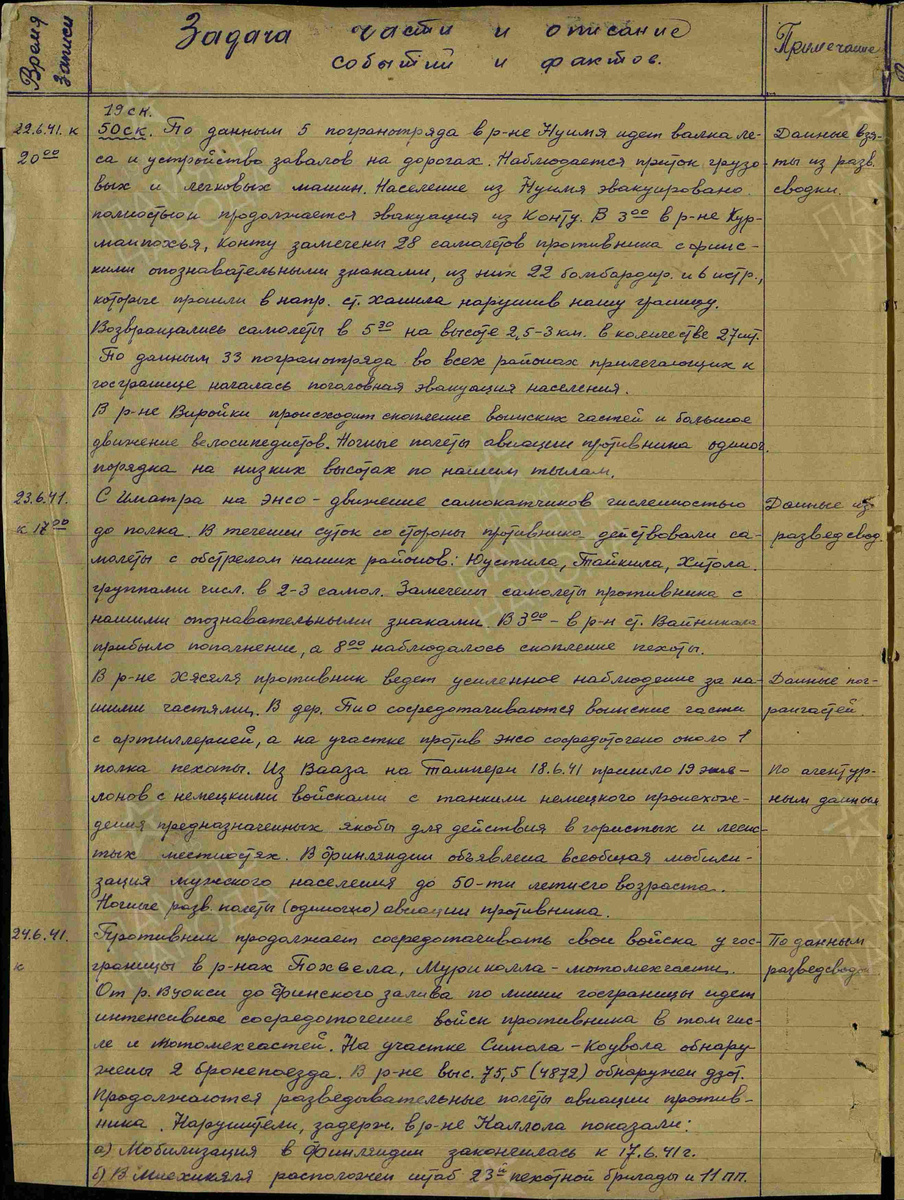 Время записи
Задача части и описание
событий и фактов.
Примечание
19 ск.
22.6.41. к
50СК. По данным 5 погранотряда в р-не Нуимя идет валка ле-
Данные взя-
20⁰⁰
са и устройство завалов на дорогах. Наблюдается приток грузо-
ты из разв.
вых и легковых машин. Население из Нуимя эвакуировано
сводки.
полностью и продолжается эвакуация из Конту. В 3⁰⁰ в р-не Кур-
манпохья, Конту замечены 28 самолетов противника с финс-
кими опознавательными знаками, из них 22 бомбардир. и 6 истр.,
которые прошли в напр. ст. Хаишла нарушив нашу границу.
Возвращались самолеты в 5³⁰ на высоте 2,5-3 км. в количестве 27 шт.
По данным 33 погранотряда во всех районах прилегающих к
госгранице началась поголовная эвакуация населения.
В р-не Виройки происходит скопление воинских частей и большое
движение велосипедистов. Ночные полеты авиации противника одиноч.
порядка на низких высотах по нашим тылам.
23.6.41.
С Иматра на Энсо - движение самокатчиков численностью
Данные из
к 17⁰⁰
до полка. В течении суток со стороны противника действовали са-
разведсвод.
молеты с обстрелом наших районов: Юустила, Тайкила, Хитола.
группами числ. в 2-3 самол. Замечены самолеты противника с
нашими опознавательными знаками. В 3⁰⁰ - в р-н ст. Вайникала
прибыло пополнение, а 8⁰⁰ наблюдалось скопление пехоты.
В р-не Хяселя противник ведет усиленное наблюдение за на-
Данные пог-
шими частями. В дер. Пио сосредотачиваются воинские части
ранчастей.
с артиллерией, а на участке против Энсо сосредоточено около 1
полка пехоты. Из Вааза на Тампери 18.6.41 прошло 19 эше-
По агентур-
лонов с немецкими войсками с танками немецкого происхож-
ным данным
дения предназначенных якобы для действия в гористых и лесис-
тых местностях. В Финляндии объявлена всеобщая мобили-
зация мужского населения до 50-ти летнего возраста.
Ночные разв. полеты (одиночно) авиации противника.
24.6.41.
Противник продолжает сосредотачивать свои войска у гос-
По данным
к
границы в р-нах Похвела, Муриколла - мотомехчасти.
разведсводок
От р. Вуокси до Финского залива по линии госграницы идет
интенсивное сосредоточение войск противника в том чис-
ле и мотомехчастей. На участке Симола - Коувола обнару-
жены 2 бронепоезда. В р-не выс. 75,5 (4872) обнаружен дзот.
Продолжаются разведывательные полеты авиации против-
ника. Нарушители, задерж. в р-не Каллола показали:
а) Мобилизация в Финляндии закончилась к 17.6.41 г.
б) В Миехикяля расположен штаб 23й пехотной бригады и 11 ПП.